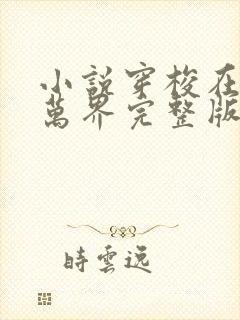 小說穿梭在
萬界完整版
時雲遠